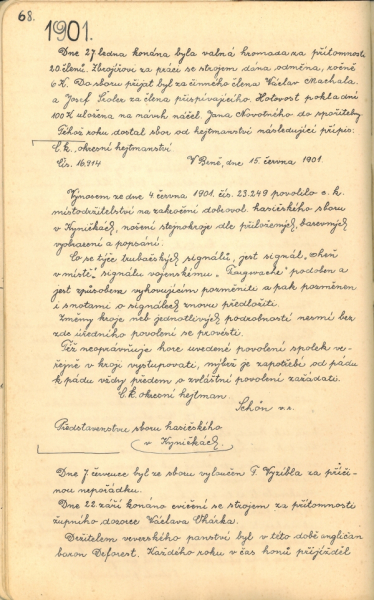 68.
1901.
Dne 27 ledna konána byla valná hromada za přítomnosti
20 členů. Zbrojířovi za práci se strojem dána odměna, ročně
6 K. Do sboru přijat byl za činného člena Václav Machala
a Josef Šidler za člena přispívajícího. Hotovost pokladní
100 K uložena na návrh náčel. Jana Novotného do spořitelny.
Téhož roku dostal sbor od hejtmanství následující přípis:
C. k. okresní hejtmanství
Čís. 16.914 V Brně, dne 15. června 1901
Výnosem ze dne 4 června 1901. čís. 23.249 povolilo c. k.
místodržitelství na zakročení dobrovol. hasičského sboru
v Kyničkách, nošení stejnokroje dle přiložených, barevných
vyobrazení a popsání.
Co se týče trubačských signálů, jest signál „oheň
v místě“ signálu vojenskému „Tongwache“ podoben a
jest způsobem vyhovujícím pozměniti a pak pozměněn
i s notami o signálech znovu předložiti.
Změny kroje neb jednotlivých podrobností nesmí bez
zde úředního povolení se provésti.
Též neoprávňuje hore uvedené povolení spolek ve-
řejně v kroji vystupovati, nýbrž je zapotřebí od pádu
k pádu vždy předem o zvláštní povolení zažádati.
C. k. okresní hejtman
Schön v. r.
Představenstvu sboru hasičského
v Kyničkách.
Dne 7 července byl ze sboru vyloučen F. Vyzibla za příči-
nou nepořádku.
Dne 22. září konáno cvičení se strojem za přítomnosti
župního dozorce Václava Uhárka.
Držitelem veverského panství byl v této době angličan
baron Deforest. Každého roku v čas honů přijížděl